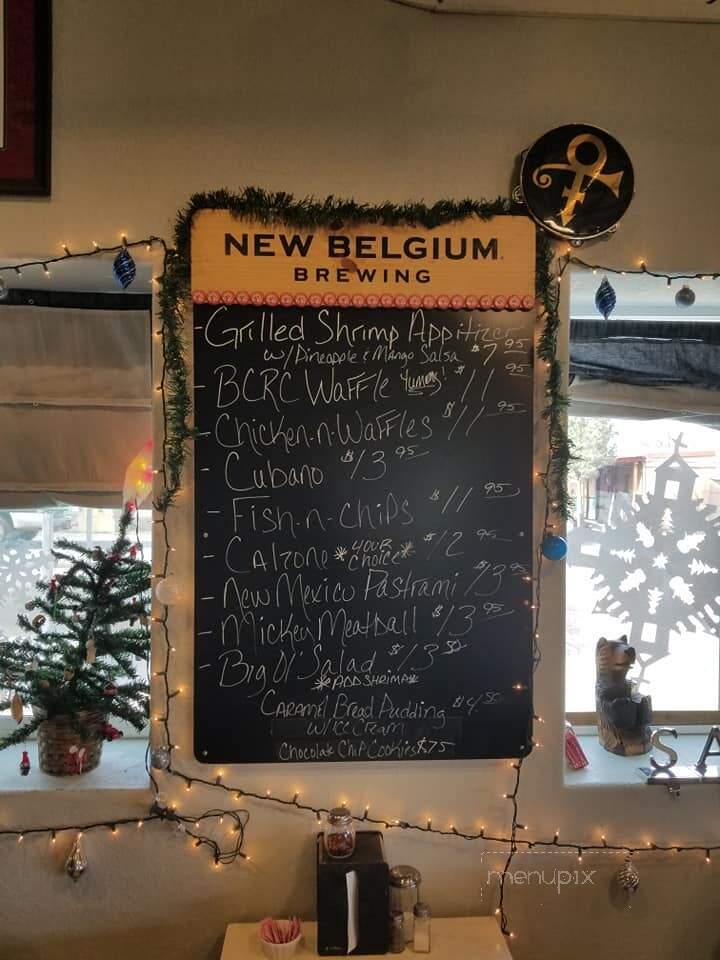 NEW BELGIUM
BREWING
- Grilled Shrimp Appitizer
w/ Pineapple & Mango Salsa $7.95
- BCRC Waffle Yummy! $11.95
- Chicken-n-Waffles $11.95
- Cubano $13.95
- Fish-n-Chips $11.95
- Calzone *YOUR CHOICE* $12.95
- New Mexico Pastrami $13.95
- Mickey Meatball $13.95
- Big Ol' Salad $13.50
*ADD SHRIMP*
Caramel Bread Pudding $4.50
w/ Ice Cream
Chocolate Chip Cookies $.75
SA
menupix